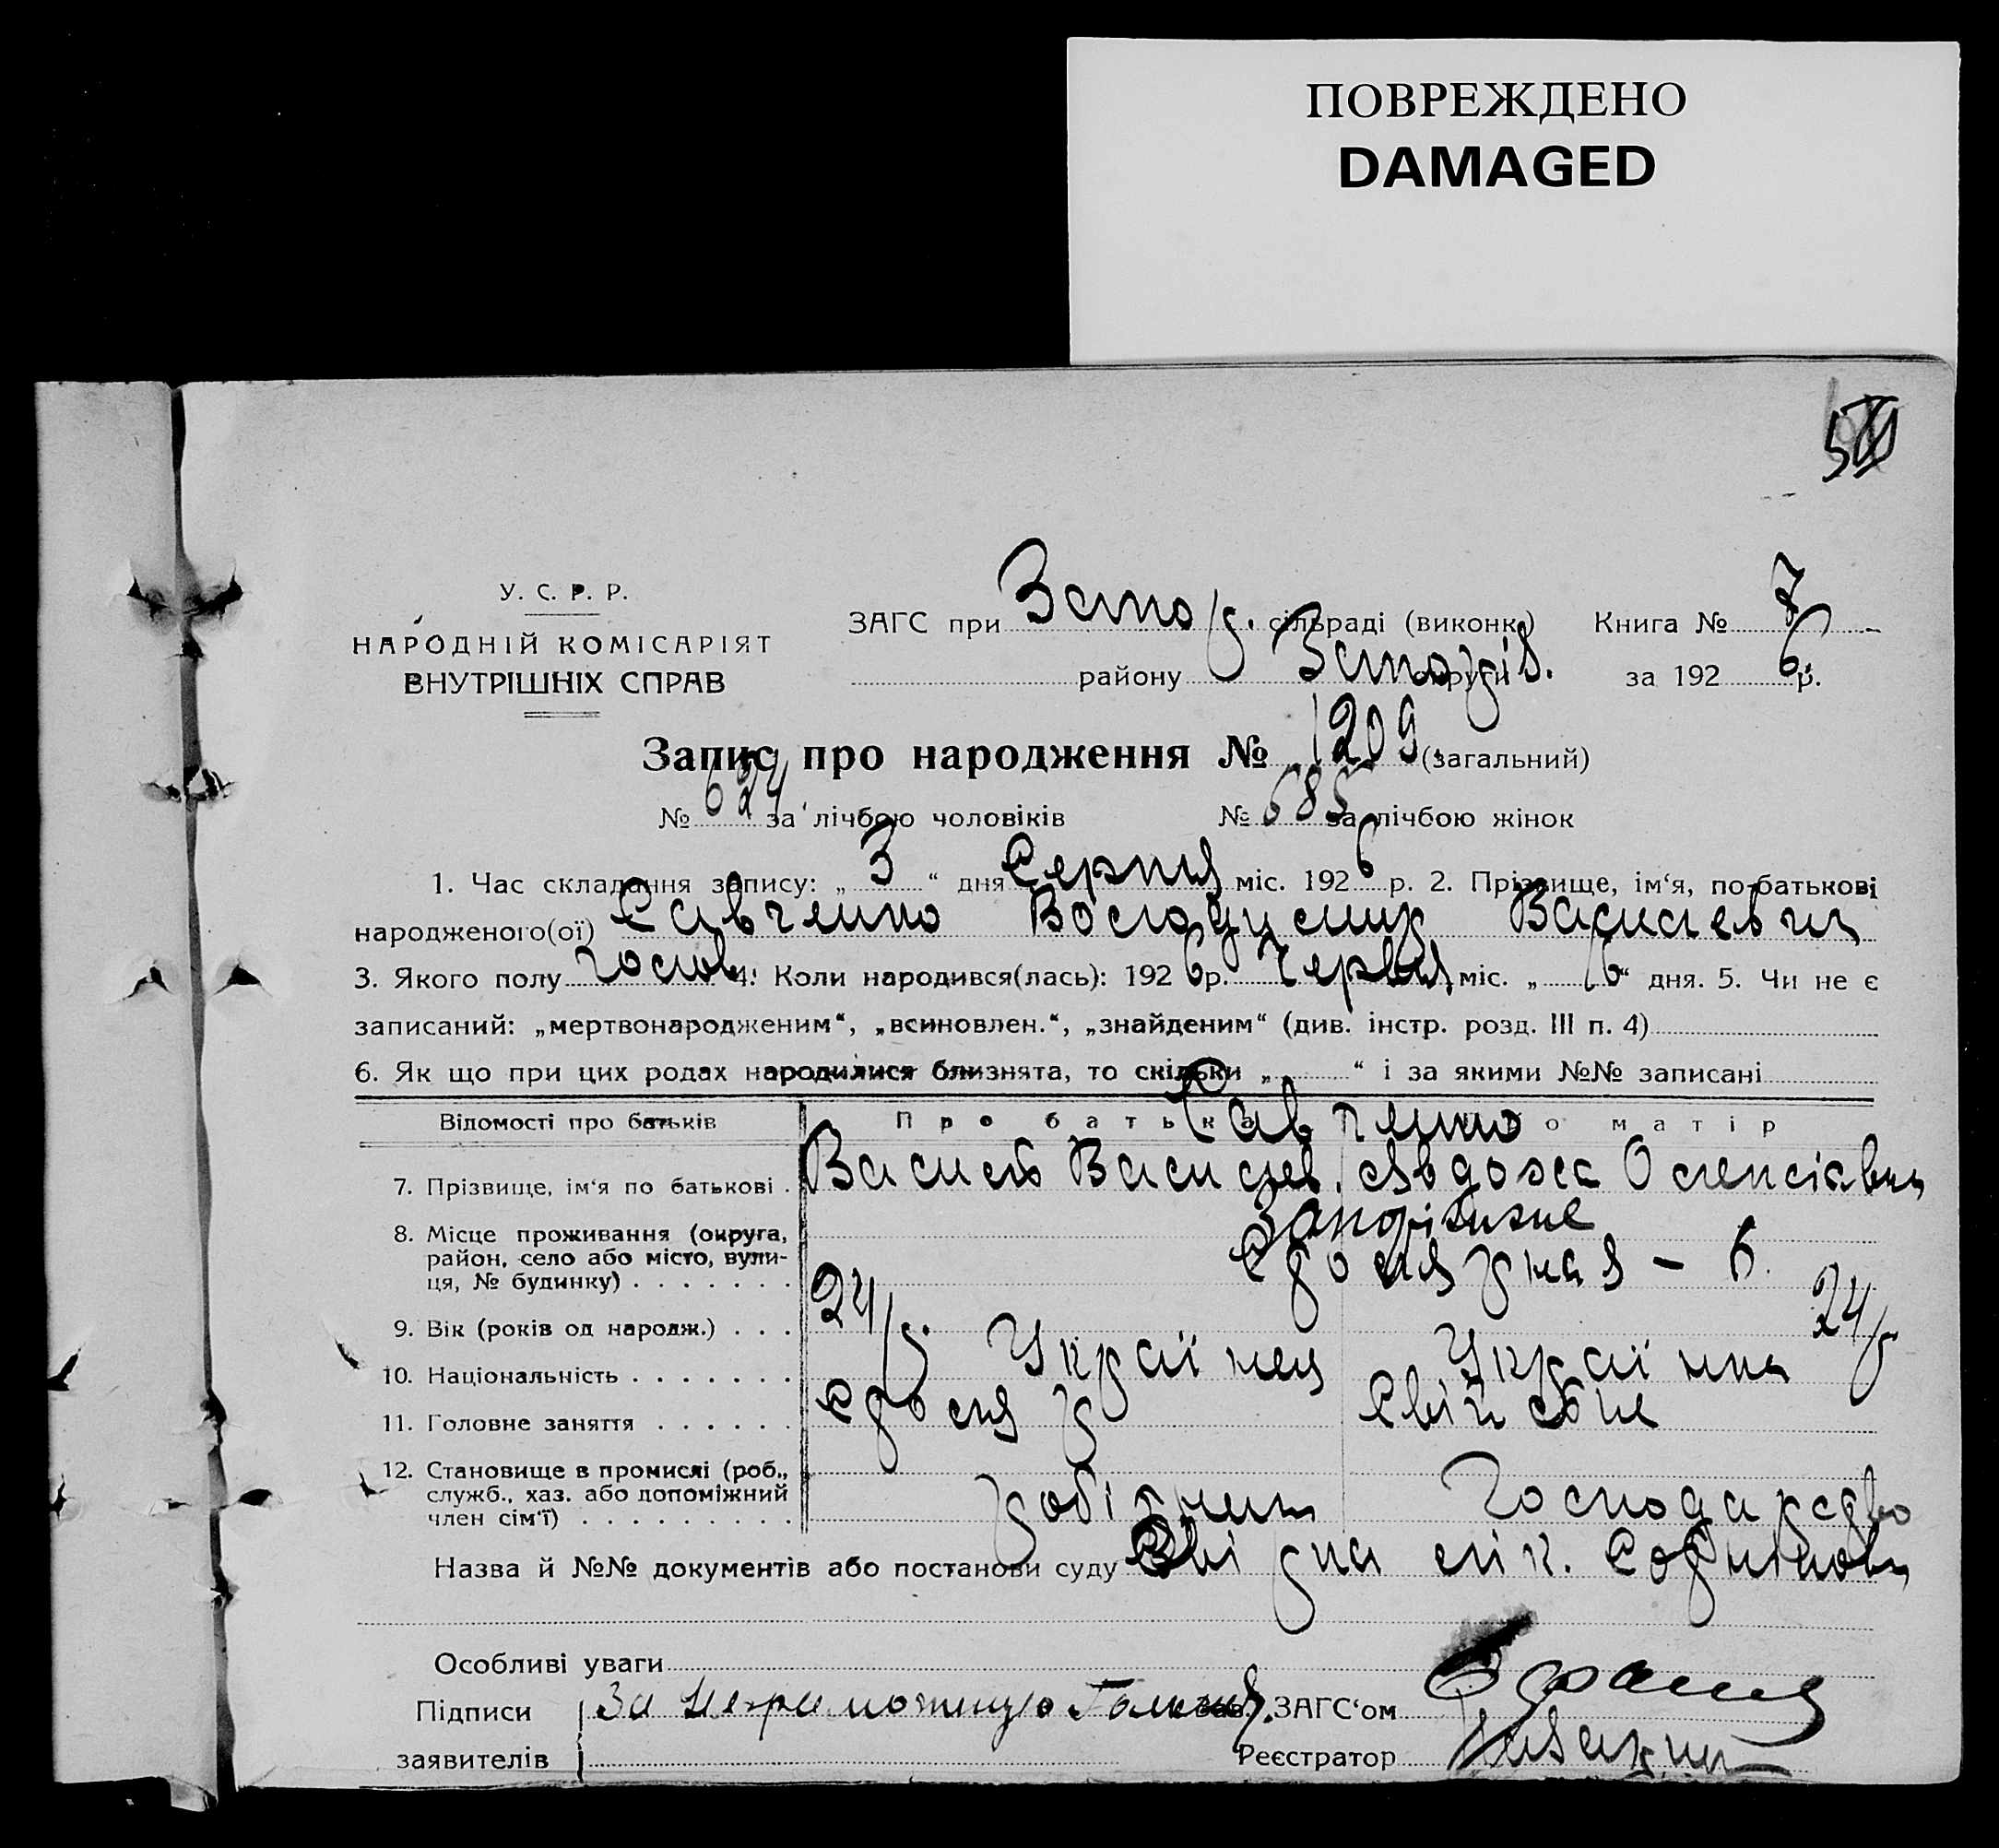 ПОВРЕЖДЕНО
DAMAGED
У. С. Р. Р.
НАРОДНІЙ КОМІСАРІЯТ
ВНУТРІШНІХ СПРАВ
ЗАГС при Запор. сільраді (виконк.) Книга № 7
району Запоріз. округи за 1926 р.
Запис про народження № 1209 (загальний)
№ 624 за лічбою чоловіків № 585 за лічбою жінок
1. Час складання запису: „3“ дня Серпня міс. 1926 р. 2. Прізвище, ім‘я, по-батькові
народженого(ої) Савченко Володимир Васильевич
3. Якого полу чолов. 4. Коли народився(лась): 1926 р. Червня міс. „16“ дня. 5. Чи не є
записаний: „мертвонародженим“, „всиновлен.“, „знайденим“ (див. інстр. розд. III п. 4)
6. Як що при цих родах народилися близнята, то скільки „ “ і за якими №№ записані
Відомості про батьків Про батька о матір
Савченко
7. Прізвище, ім‘я по батькові . Василь Васильев. Явдоха Олексіевна
8. Місце проживання (округа, район, село або місто, вулиця, № будинку) Запоріжже
Столярная – 6.
9. Вік (років од народж.) . . . 24/р. 24/р
10. Національність Українец Українка
11. Головне заняття Столяр Свійське
12. Становище в промислі (роб., служб., хаз. або допоміжний член сім‘ї) робітник Господарство
Назва й №№ документів або постанови суду лік.
Особливі уваги
Підписи За неграмотную зав. ЗАГС‘ом
заявителів Реєстратор